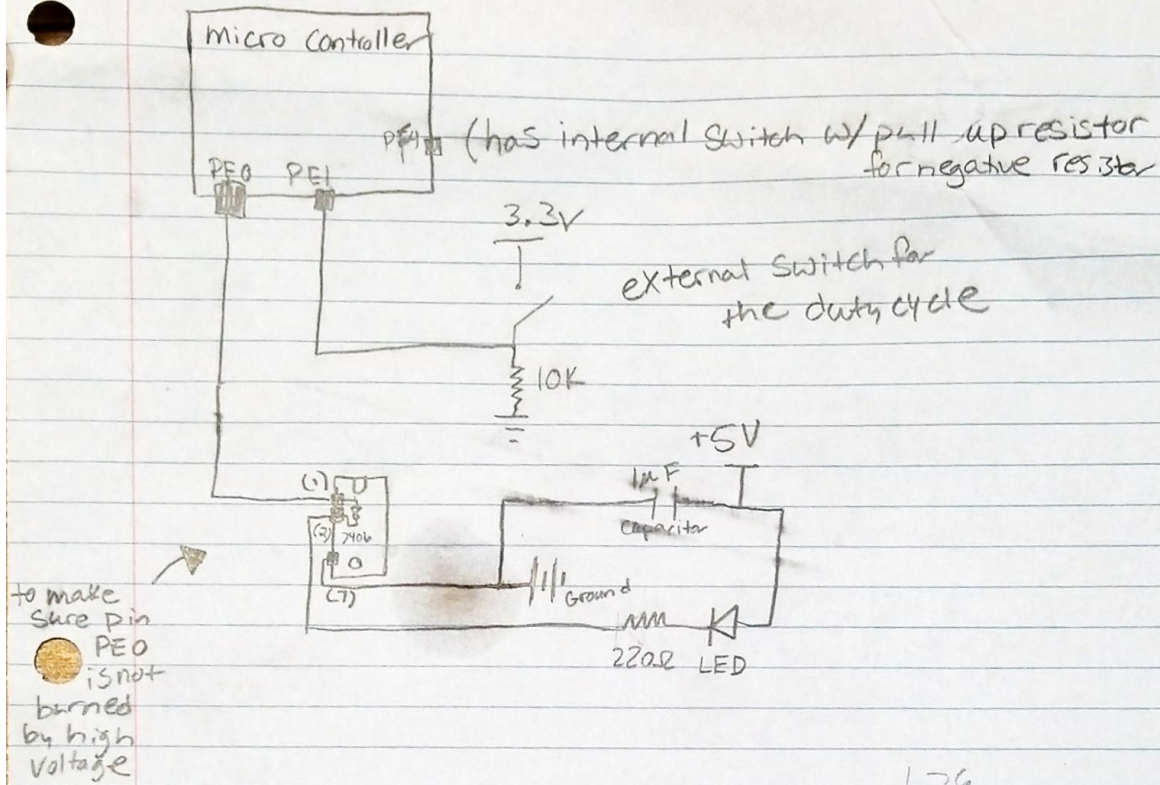 micro controller
PF4 (has internal switch w/ pull up resistor
for negative resistor
PE0 PE1
3.3V
external switch for
the duty cycle
10K
+5V
1µF
capacitor
(1)
(2) 7406
(7)
Ground
220Ω LED
to make
sure pin
PE0
is not
burned
by high
voltage